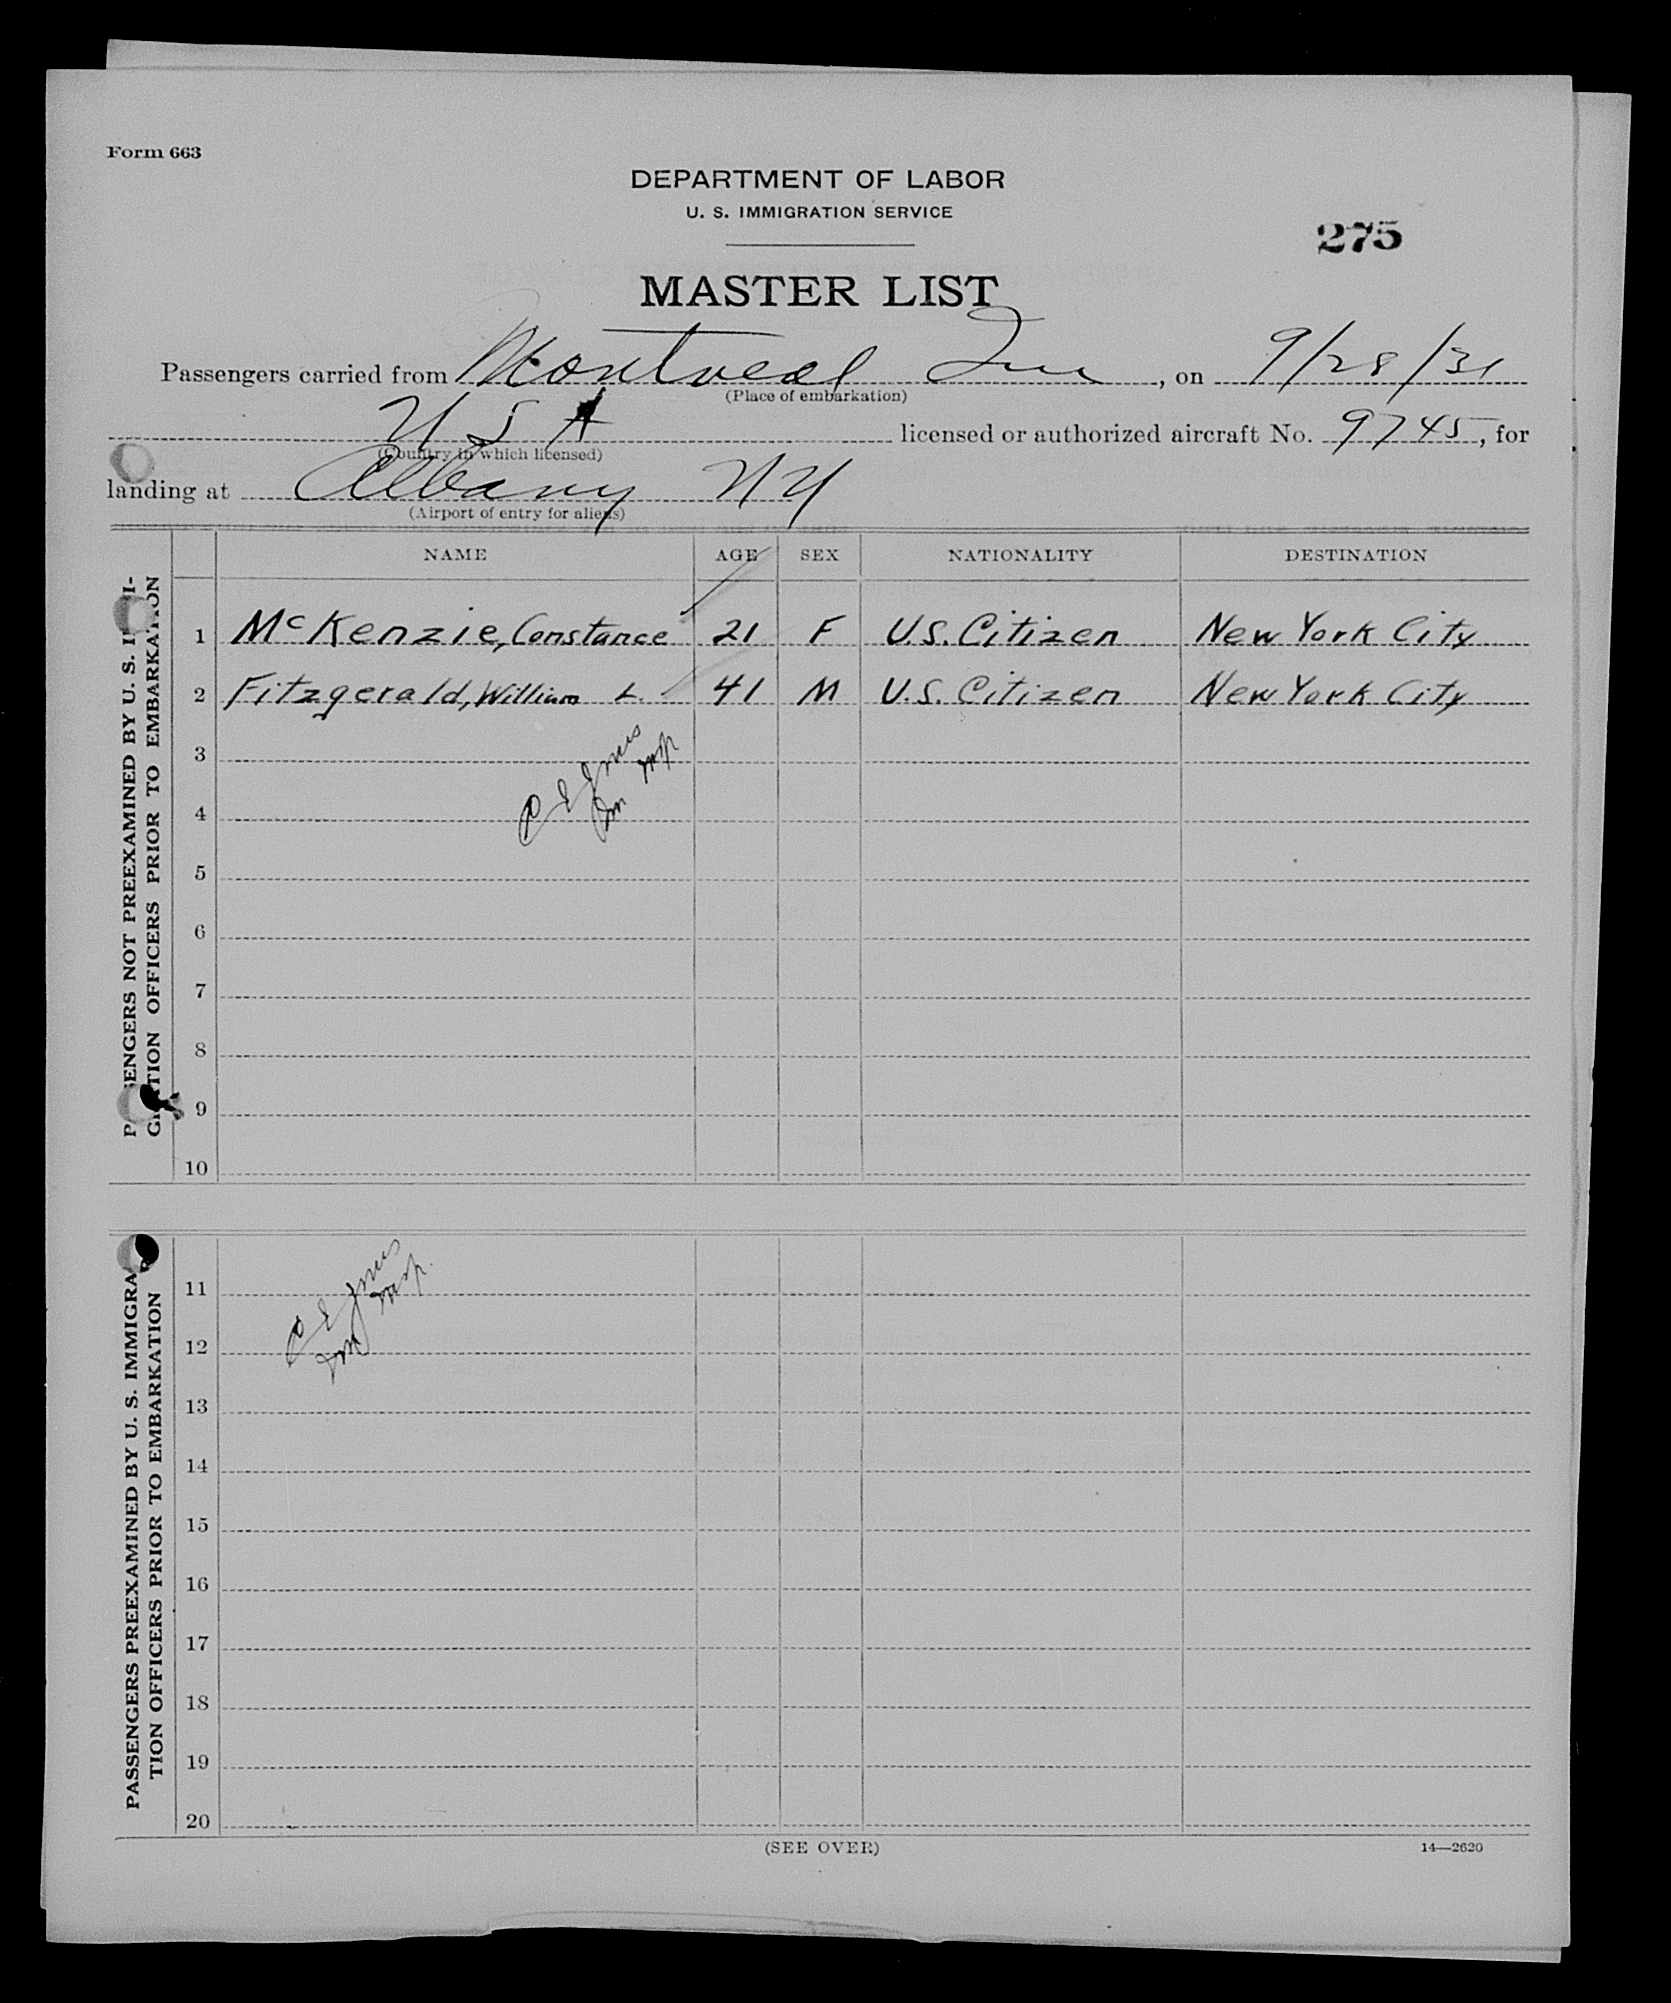 Form 663
DEPARTMENT OF LABOR
U. S. IMMIGRATION SERVICE
275
MASTER LIST
Passengers carried from Montreal Que, on 9/28/31
(Place of embarkation)
USA licensed or authorized aircraft No. 9745, for
(Country in which licensed)
landing at Albany NY
(Airport of entry for aliens)
NAME AGE SEX NATIONALITY DESTINATION
PASSENGERS NOT PREEXAMINED BY U. S. IMMI-
GRATION OFFICERS PRIOR TO EMBARKATION
1 McKenzie, Constance 21 F U.S. Citizen New York City
2 Fitzgerald, William L. 41 M U.S. Citizen New York City
3
4
5
6
7
8
9
10
PASSENGERS PREEXAMINED BY U. S. IMMIGRA-
TION OFFICERS PRIOR TO EMBARKATION
11
12
13
14
15
16
17
18
19
20
(SEE OVER)
14—2620